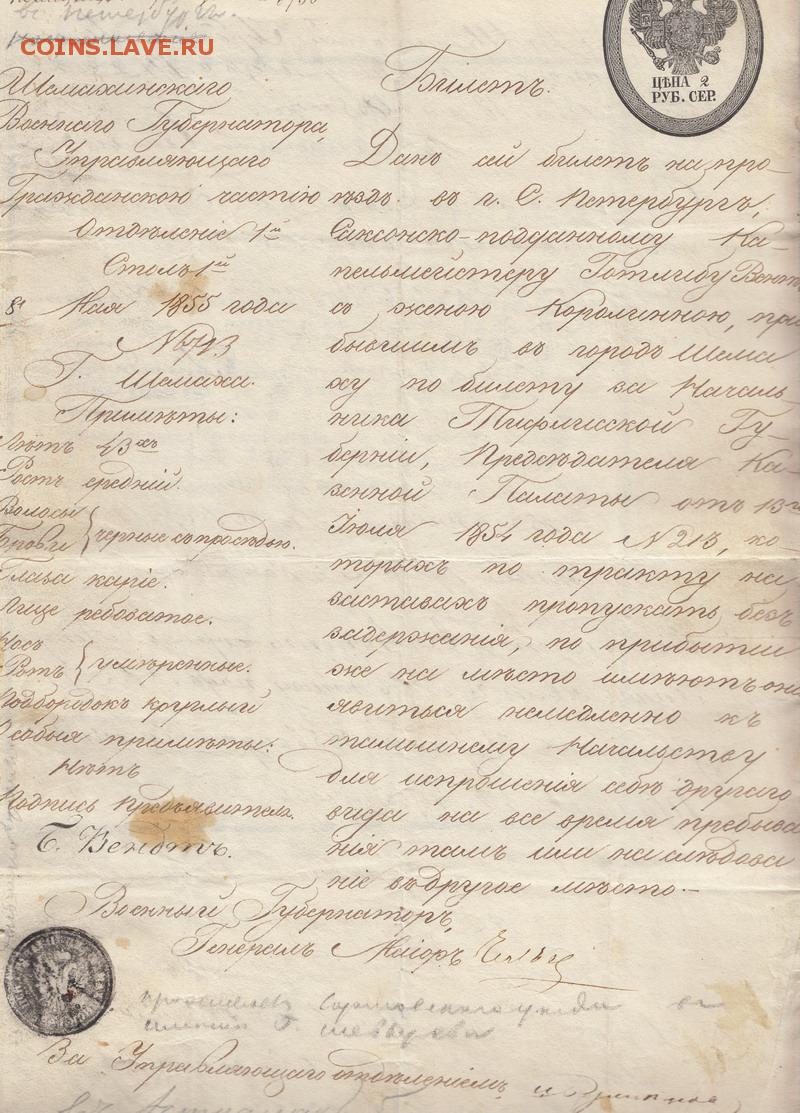 въ Петербургъ.
COINS.LAVE.RU
ЦѢНА 2
РУБ. СЕР.
Шемахинскаго
Военнаго Губернатора,
Управляющаго
Гражданскою частію
Отдѣленіе 1е
Столъ 1й
8 Мая 1855 года
№
Г. Шемаха.
Примѣты:
Лѣтъ 43
Ростъ средній.
Волосы
Брови } черные съ просѣдью.
Глаза каріе.
Лице рябоватое.
Носъ
Ротъ } умѣренные.
Подбородокъ круглый
Особыя примѣты:
Нѣтъ
Подпись предъявителя.
Г. Вендтъ.
Билетъ.
Данъ сей билетъ на про-
ѣздъ въ г. С. Петербургъ,
Саксонско-подданному Ка-
пельмейстеру Готлибу Вендт
съ женою Королинною, при
бывшимъ въ городъ Шема
ху по билету за Началь-
ника Тифлисской Гу-
берніи, Предсѣдателя Ка-
зенной Палаты отъ 13го
Іюля 1854 года № 213, ко-
торыхъ по тракту на
заставахъ пропускать безъ
задержанія, по прибытіи
же на мѣсто имѣютъ они
явиться немедленно къ
тамошнему Начальству
для испрошенія себѣ другаго
вида на все время пребыва
нія тамъ или на слѣдова
ніе въ другое мѣсто.—
Военный Губернаторъ,
Генералъ Маіоръ
За Управляющаго отдѣленіемъ